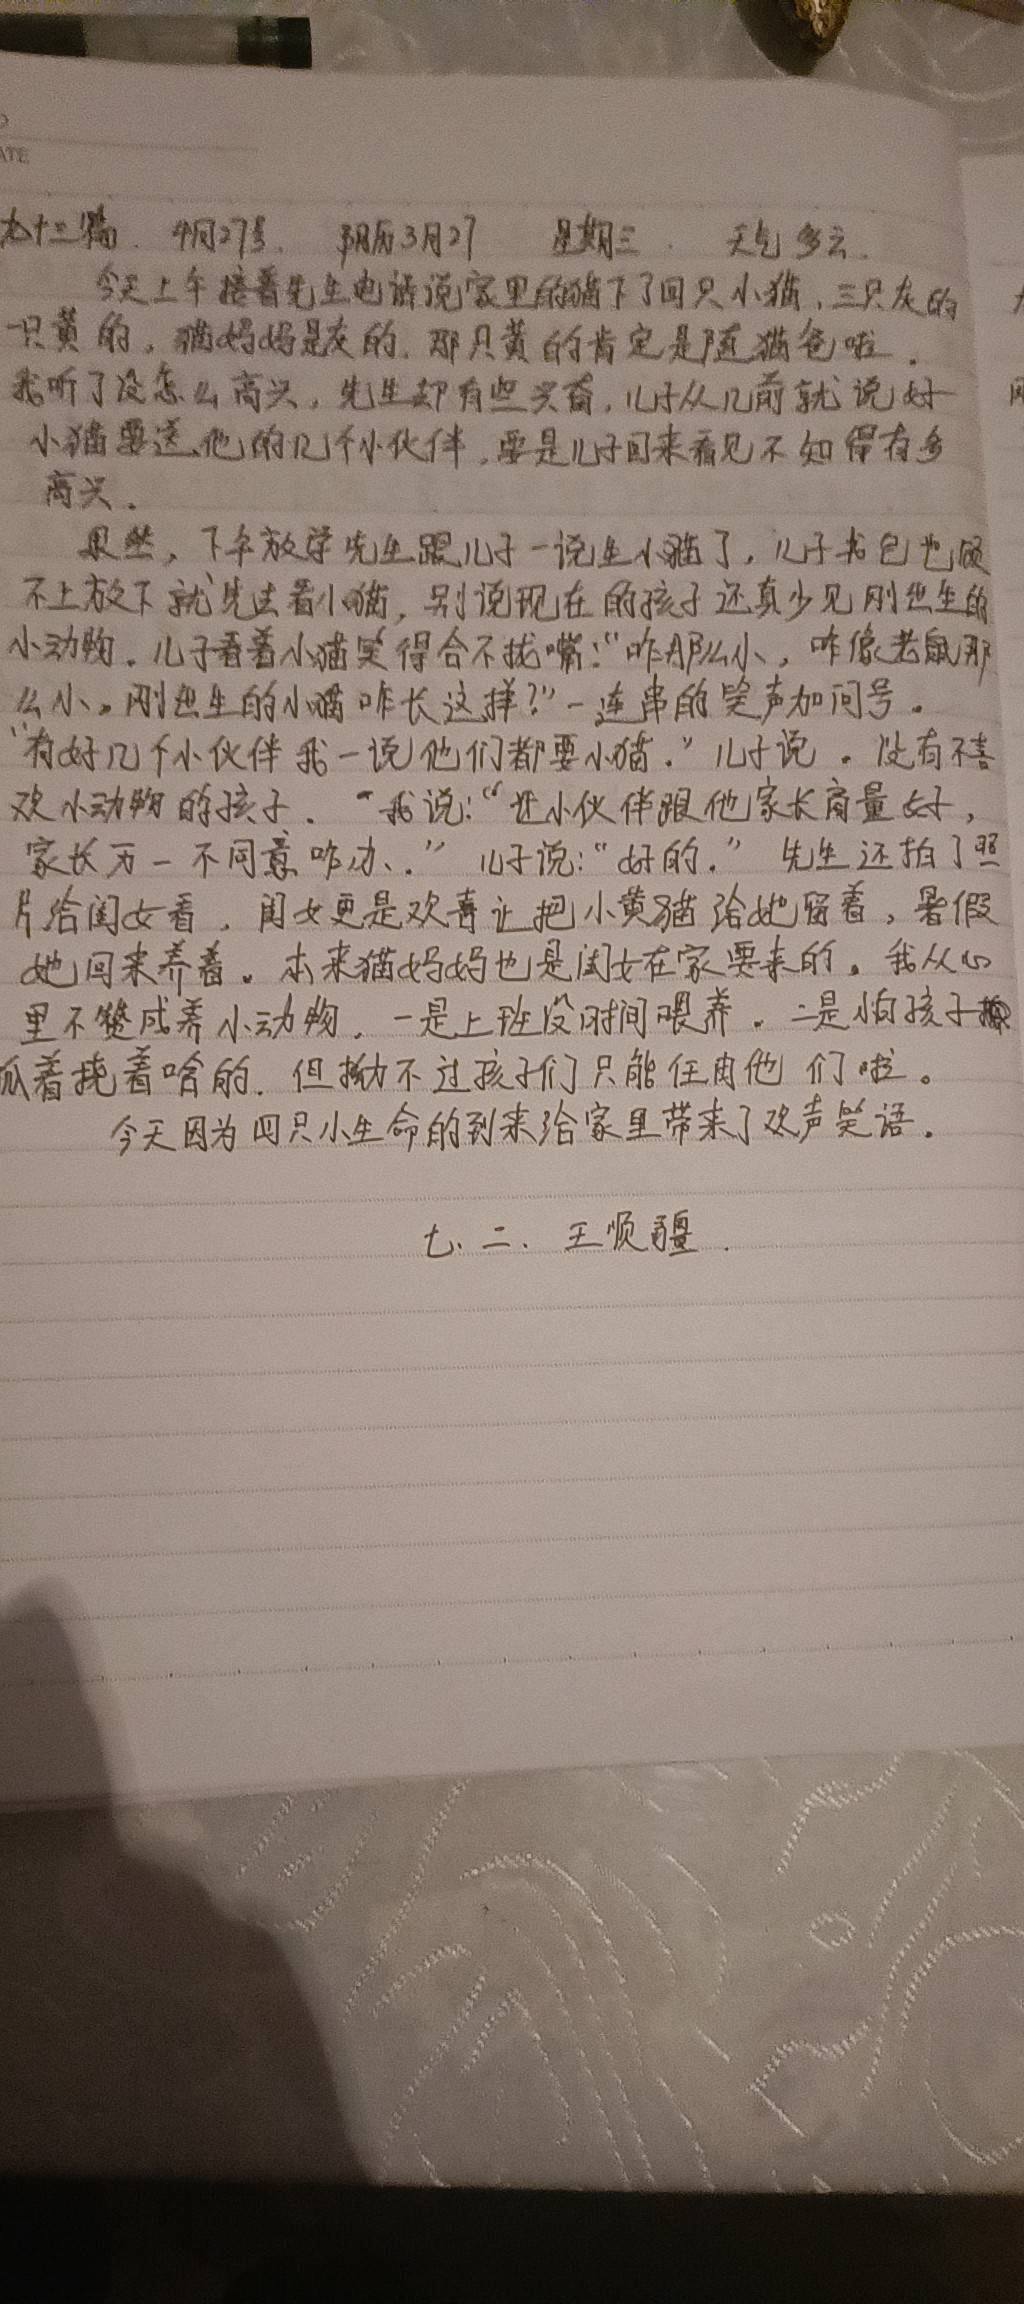 ATE
九十三篇. 4月27号. 阴历3月27 星期三. 天气多云.
今天上午接着先生电话说家里的猫下了四只小猫,三只灰的
一只黄的,猫妈妈是灰的,那只黄的肯定是随猫爸啦.
我听了没怎么高兴,先生却有些兴奋,儿子从几前就说好
小猫要送他的几个小伙伴,要是儿子回来看见不知得有多
高兴.
果然,下午放学先生跟儿子一说生小猫了,儿子书包也顾
不上放下就先去看小猫,别说现在的孩子还真少见刚出生的
小动物.儿子看着小猫笑得合不拢嘴:“咋那么小,咋像老鼠那
么小。刚出生的小猫咋长这样?”一连串的笑声加问号.
“有好几个小伙伴我一说他们都要小猫.”儿子说.没有不喜
欢小动物的孩子. 我说:“让小伙伴跟他家长商量好,
家长万一不同意咋办.” 儿子说:“好的.” 先生还拍了照
片给闺女看,闺女更是欢喜让把小黄猫给她留着,暑假
她回来养着。本来猫妈妈也是闺女在家要来的。我从心
里不赞成养小动物,一是上班没时间喂养.二是怕孩子
抓着挠着啥的.但拗不过孩子们只能任由他们啦。
今天因为四只小生命的到来给家里带来了欢声笑语.
七.二.王顺疆.